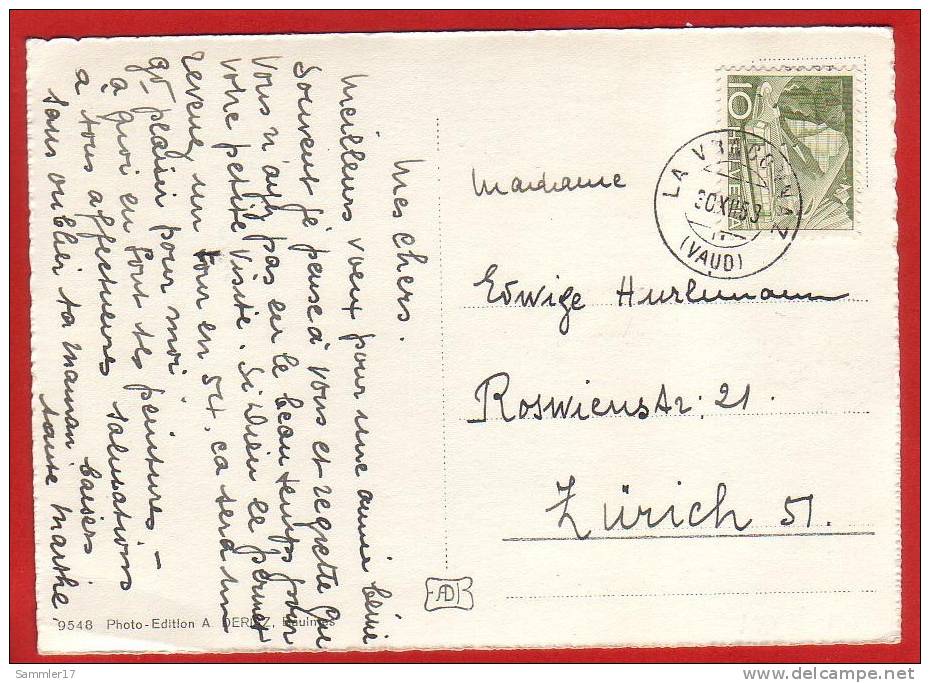 Mes chers.
Meilleurs vœux pour une année bénie
Souvent je pense à vous et regrette que
vous n'ayez pas eu le beau temps pour
votre petite visite. Si Dieu le permet
revenez un jour en 54, ça sera un
gr plaisir pour moi.
à quoi en sont tes peintures.-
à tous affectueuses salutations
sans oublier ta maman baisers
tante Marthe
Madame
Edwige Hurlimann
Roswiesenstr: 21.
Zürich 51.
10
HELVETIA
LA VRACONNAZ
30.XII.53
(VAUD)
9548 Photo-Edition A. DERIAZ, Baulmes
AD
Sammler17
delcampe.net